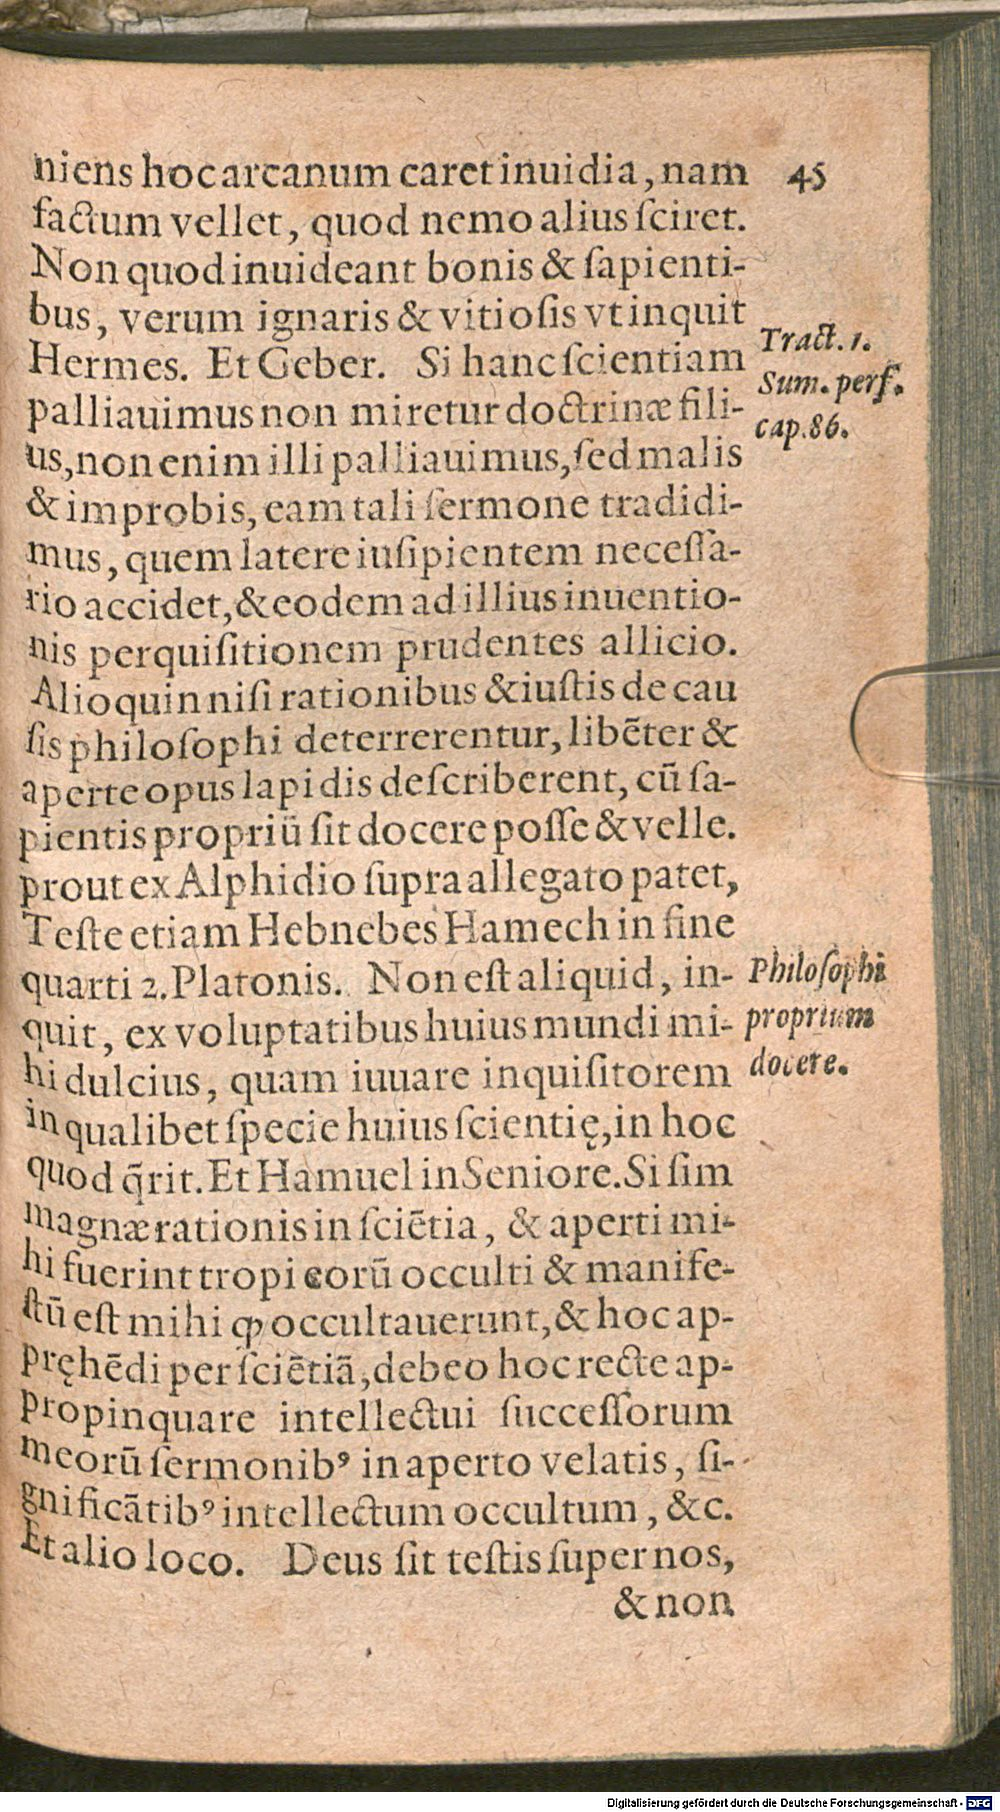 niens hoc arcanum caret inuidia, nam
45
factum vellet, quod nemo alius ſciret.
Non quod inuideant bonis & ſapienti-
bus, verum ignaris & vitioſis vt inquit
Hermes. Et Geber. Si hanc ſcientiam
Tract. 1.
Sum. perf.
cap. 86.
palliauimus non miretur doctrinæ fili-
us, non enim illi palliauimus, ſed malis
& improbis, eam tali ſermone tradidi-
mus, quem latere inſipientem neceſſa-
rio accidet, & eodem ad illius inuentio-
nis perquiſitionem prudentes allicio.
Alioquin niſi rationibus & iuſtis de cau
ſis philoſophi deterrerentur, libēter &
aperte opus lapidis deſcriberent, cū ſa-
pientis propriū ſit docere poſſe & velle.
prout ex Alphidio ſupra allegato patet,
Teſte etiam Hebnebes Hamech in fine
quarti 2. Platonis. Non eſt aliquid, in-
quit, ex voluptatibus huius mundi mi-
hi dulcius, quam iuuare inquiſitorem
Philoſophi
proprium
docere.
in qualibet ſpecie huius ſcientię, in hoc
quod q̄rit. Et Hamuel in Seniore. Si ſim
magnæ rationis in ſciētia, & aperti mi-
hi fuerint tropi eorū occulti & manife-
ſtū eſt mihi ꝙ occultauerunt, & hoc ap-
pręhēdi per ſciētiā, debeo hoc recte ap-
propinquare intellectui ſucceſſorum
meorū ſermonibꝰ in aperto velatis, ſi-
gnificātibꝰ intellectum occultum, &c.
Et alio loco. Deus ſit teſtis ſuper nos,
& non
Digitalisierung gefördert durch die Deutsche Forschungsgemeinschaft - DFG